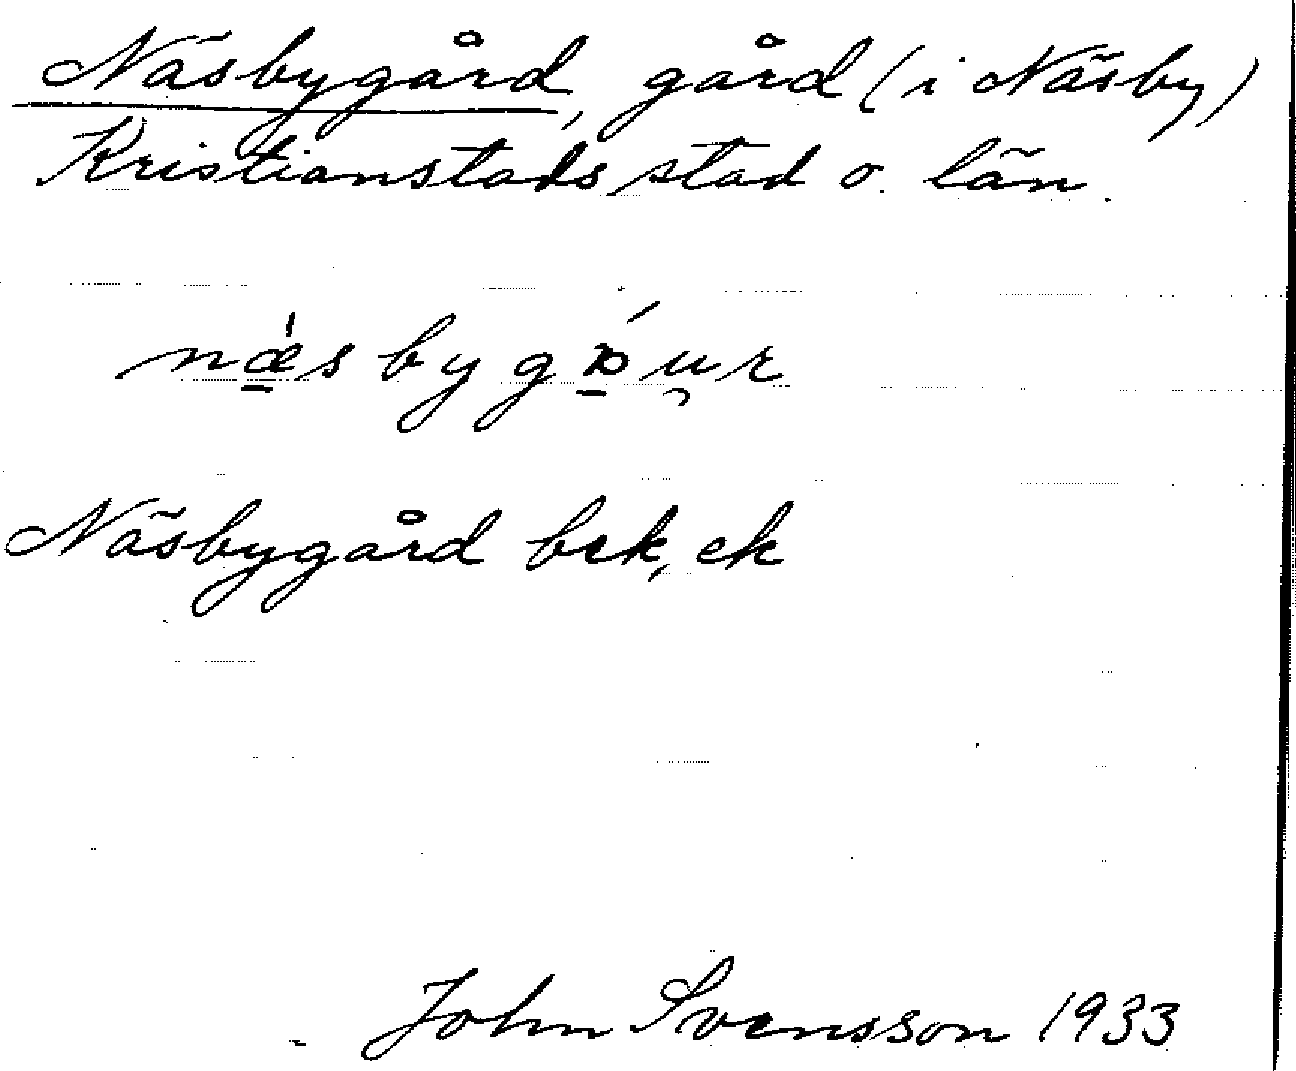 Näsbygård, gård (i Näsby)
Kristianstads stad o. län.
næ̠̍sbygɔ̠́u̯r
Näsbygård bek, ek
John Svensson 1933